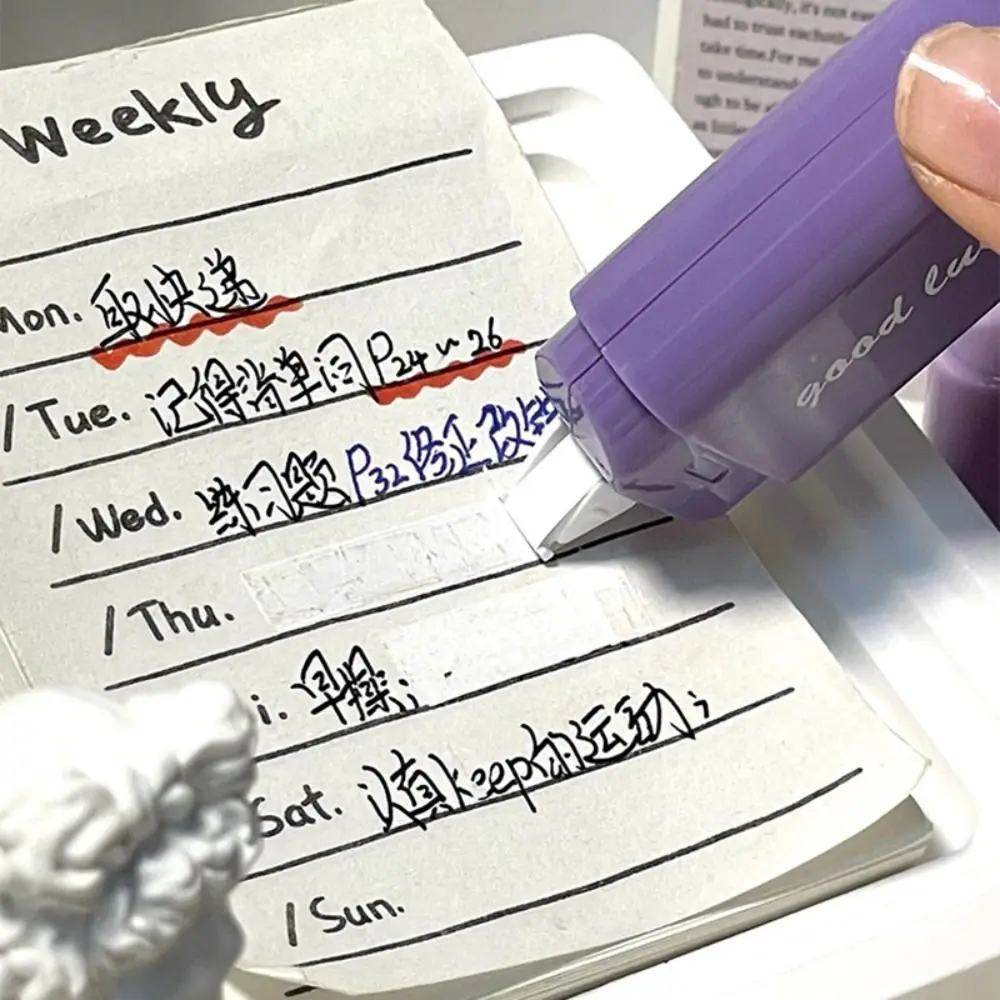 Weekly
Mon. 取快递
/ Tue. 记得背单词 P24~26
/ Wed. 练习题 P32修正改错
/ Thu.
i. 早操;
Sat. 认真keep的运动;
/ Sun.
good lu
ologically, it's not eas
had to trust eachothe
take time.For me
to understand
ugh to be
as little